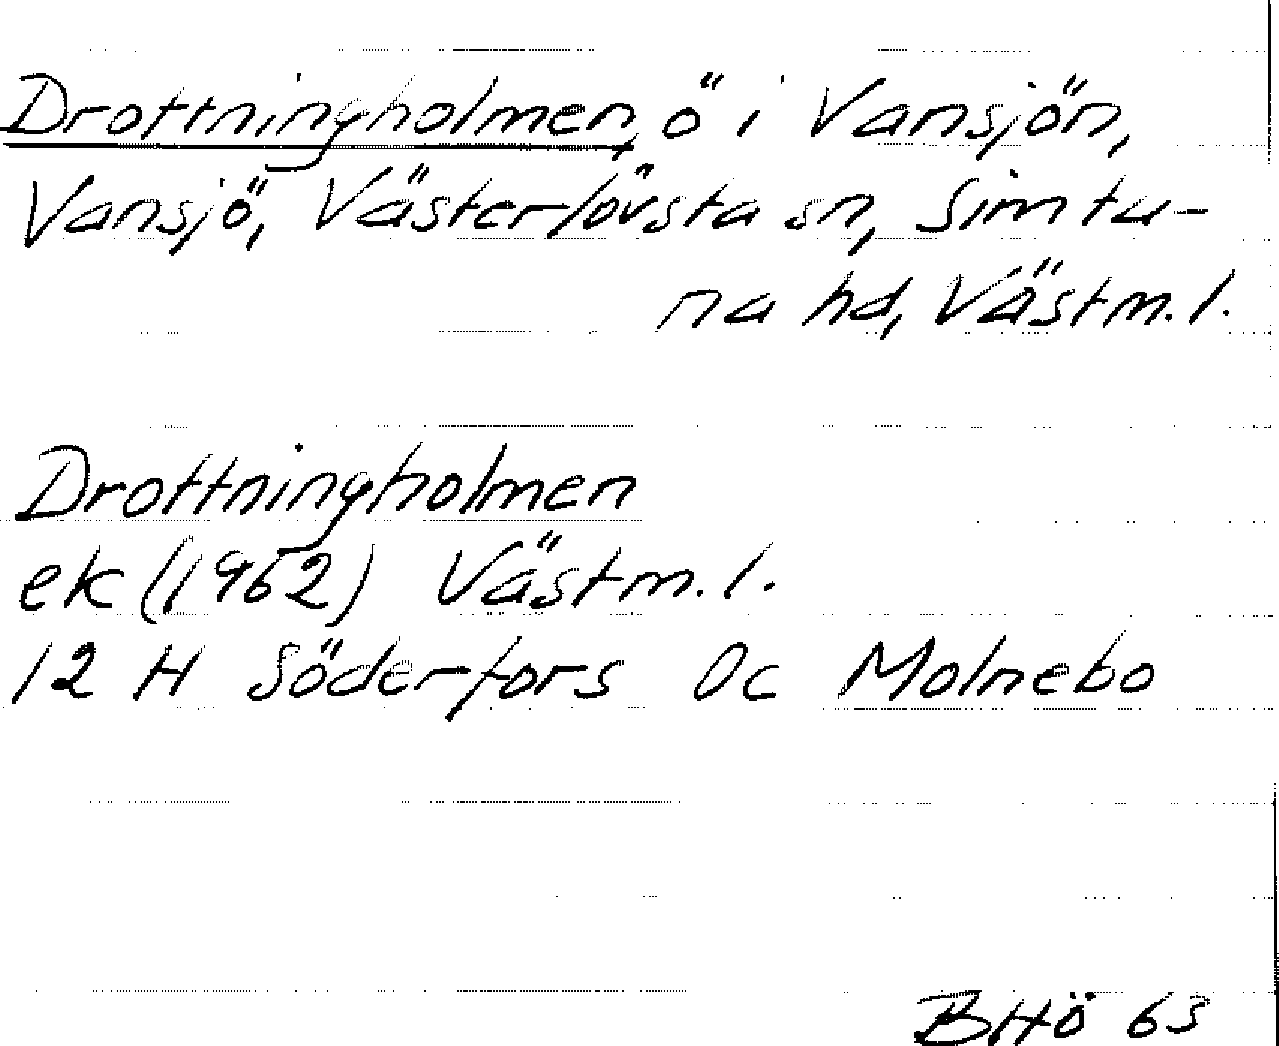 Drottningholmen, ö i Vansjön,
Vansjö, Västerlövsta sn, Simtu-
na hd, Västm. l.
Drottningholmen
ek (1962) Västm. l.
12 H Söderfors 0c Molnebo
BHö 63